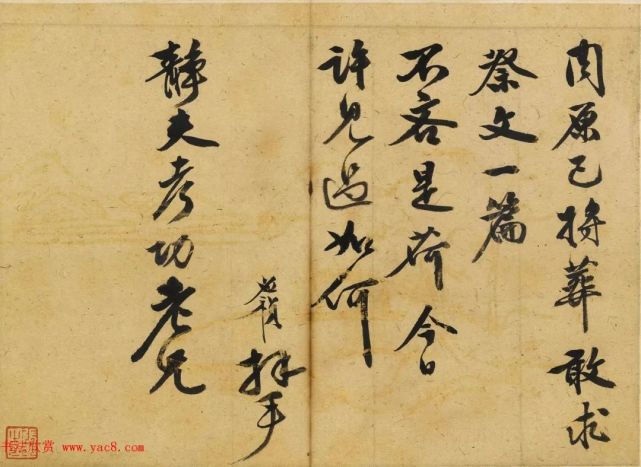 原已將葬敢求
祭文一篇
不吝是荷今日
許見過如何
拜手
靜夫考功老兄
书法欣赏 www.yac8.com